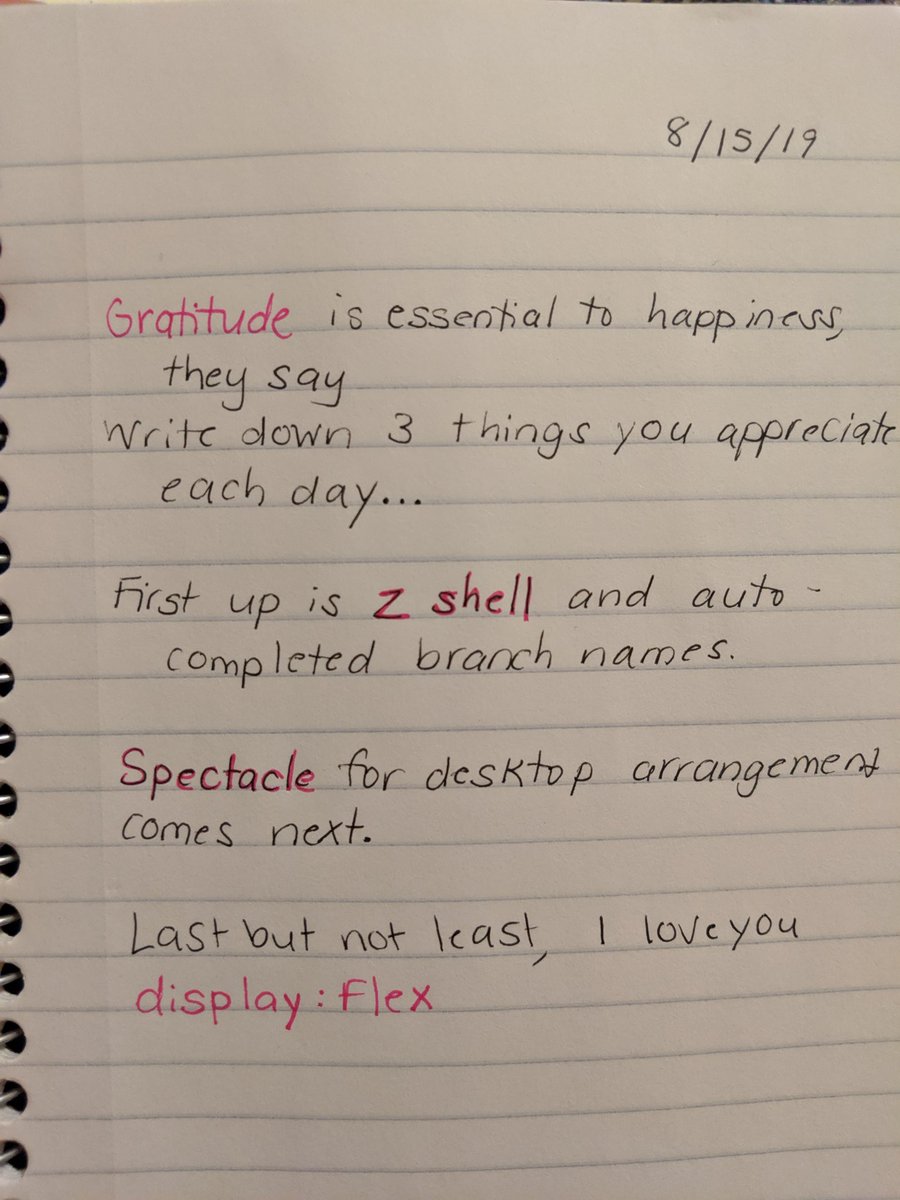 8/15/19
Gratitude is essential to happiness,
they say
Write down 3 things you appreciate
each day...
First up is z shell and auto-
completed branch names.
Spectacle for desktop arrangement
comes next.
Last but not least, I love you
display: flex